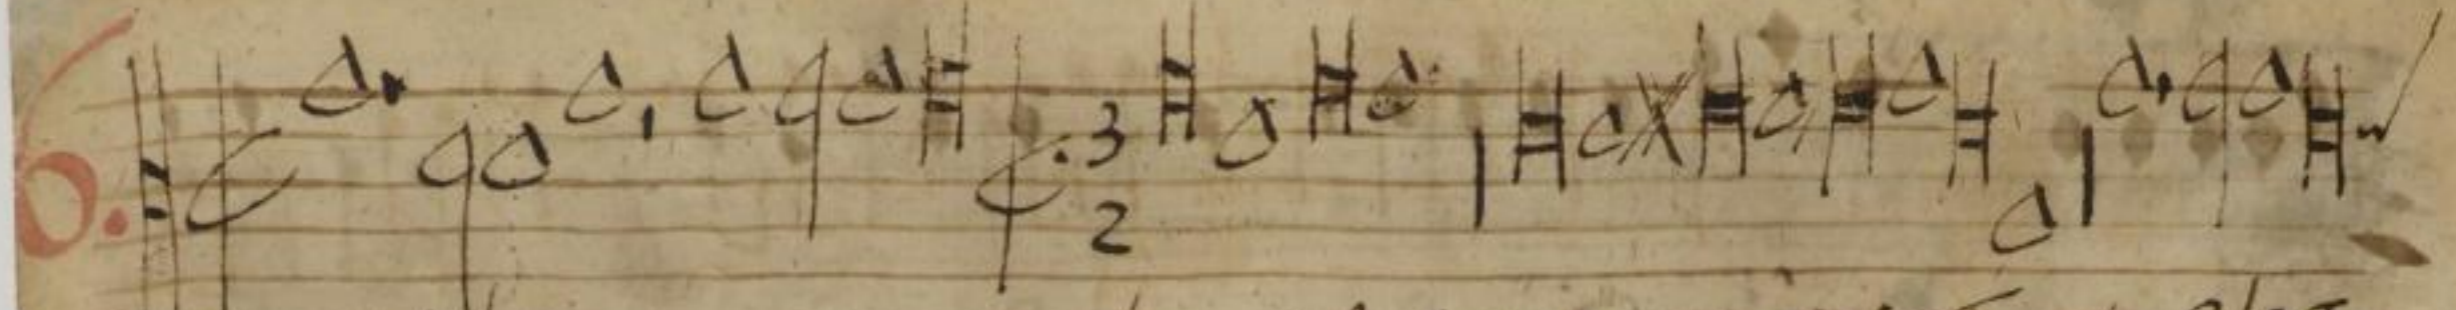 6.
3
2